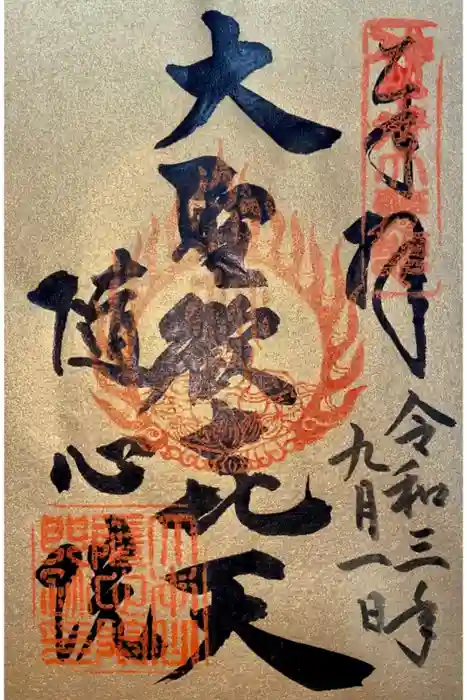 奉拝
令和三年
九月一日
大聖歓喜天
隨心院